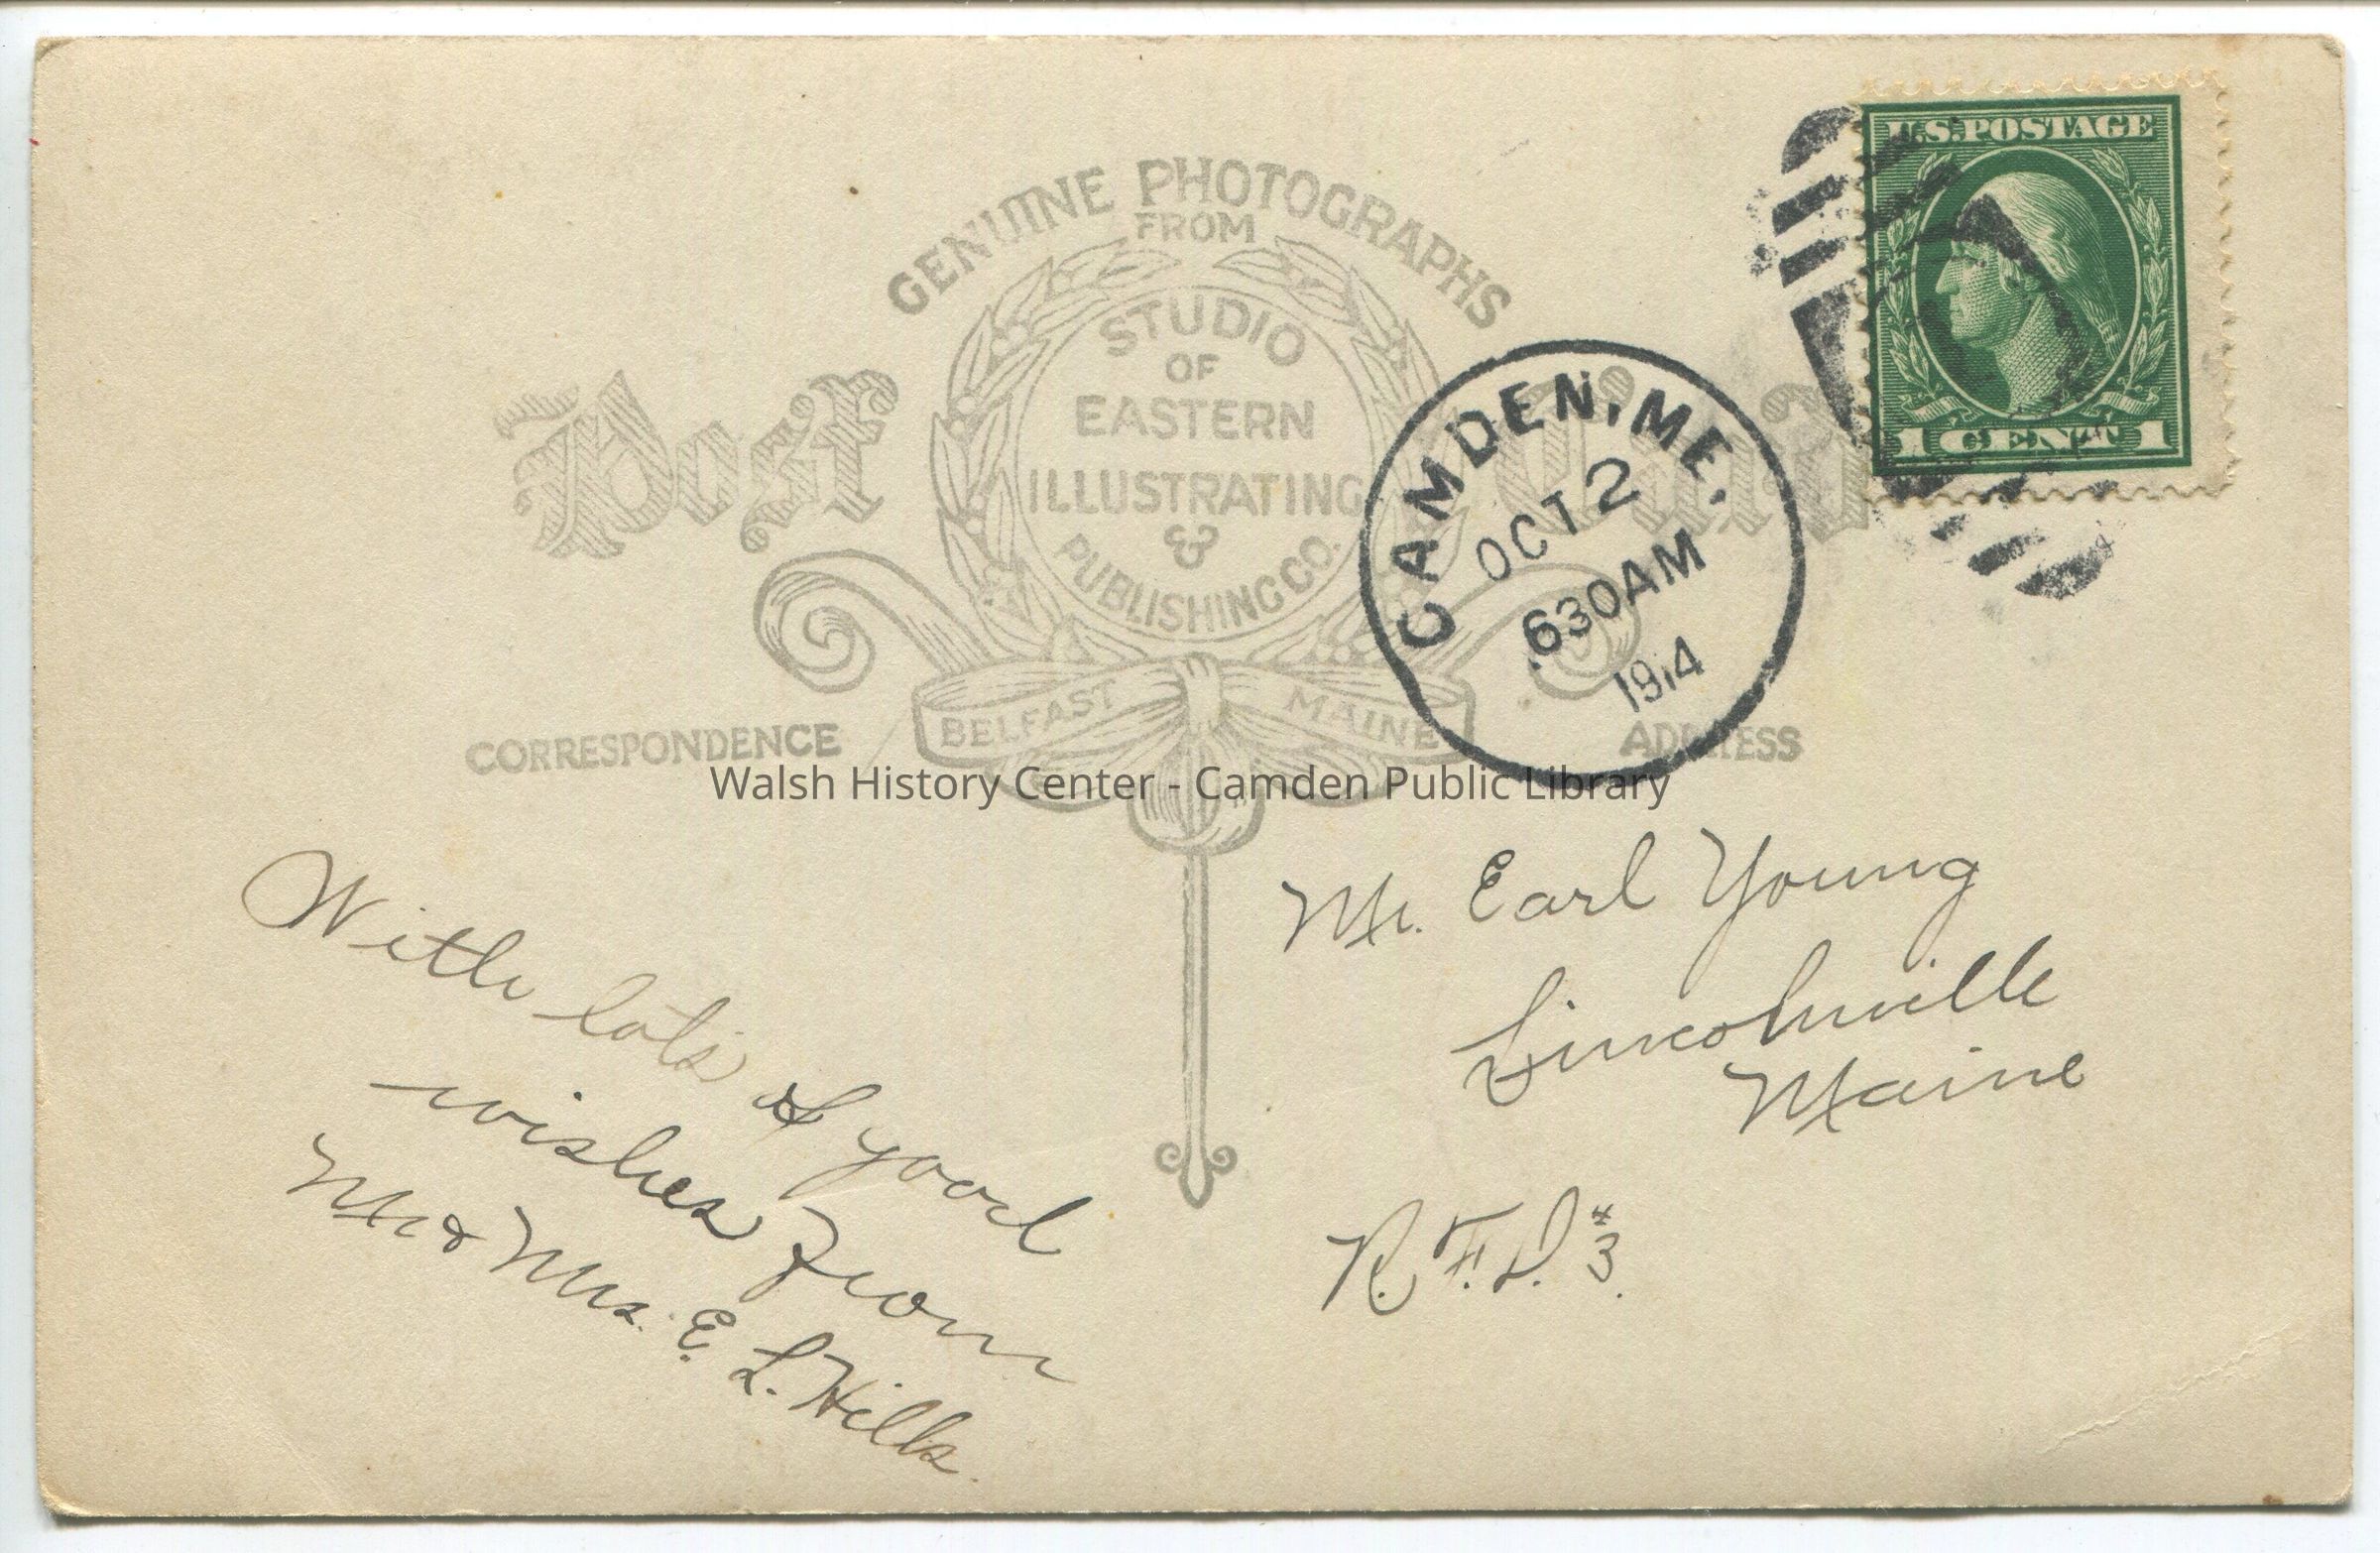 GENUINE PHOTOGRAPHS
FROM
STUDIO
OF
EASTERN
ILLUSTRATING
&
PUBLISHING CO.
BELFAST MAINE
Post Card
CORRESPONDENCE
ADDRESS
U.S. POSTAGE
1 CENT 1
CAMDEN, ME.
OCT 2
630AM
1914
Walsh History Center - Camden Public Library
With lots of good
wishes From
Mr & Mrs. E. L. Hills.
Mr. Earl Young
Lincolnville
Maine
R.F.D. #3.